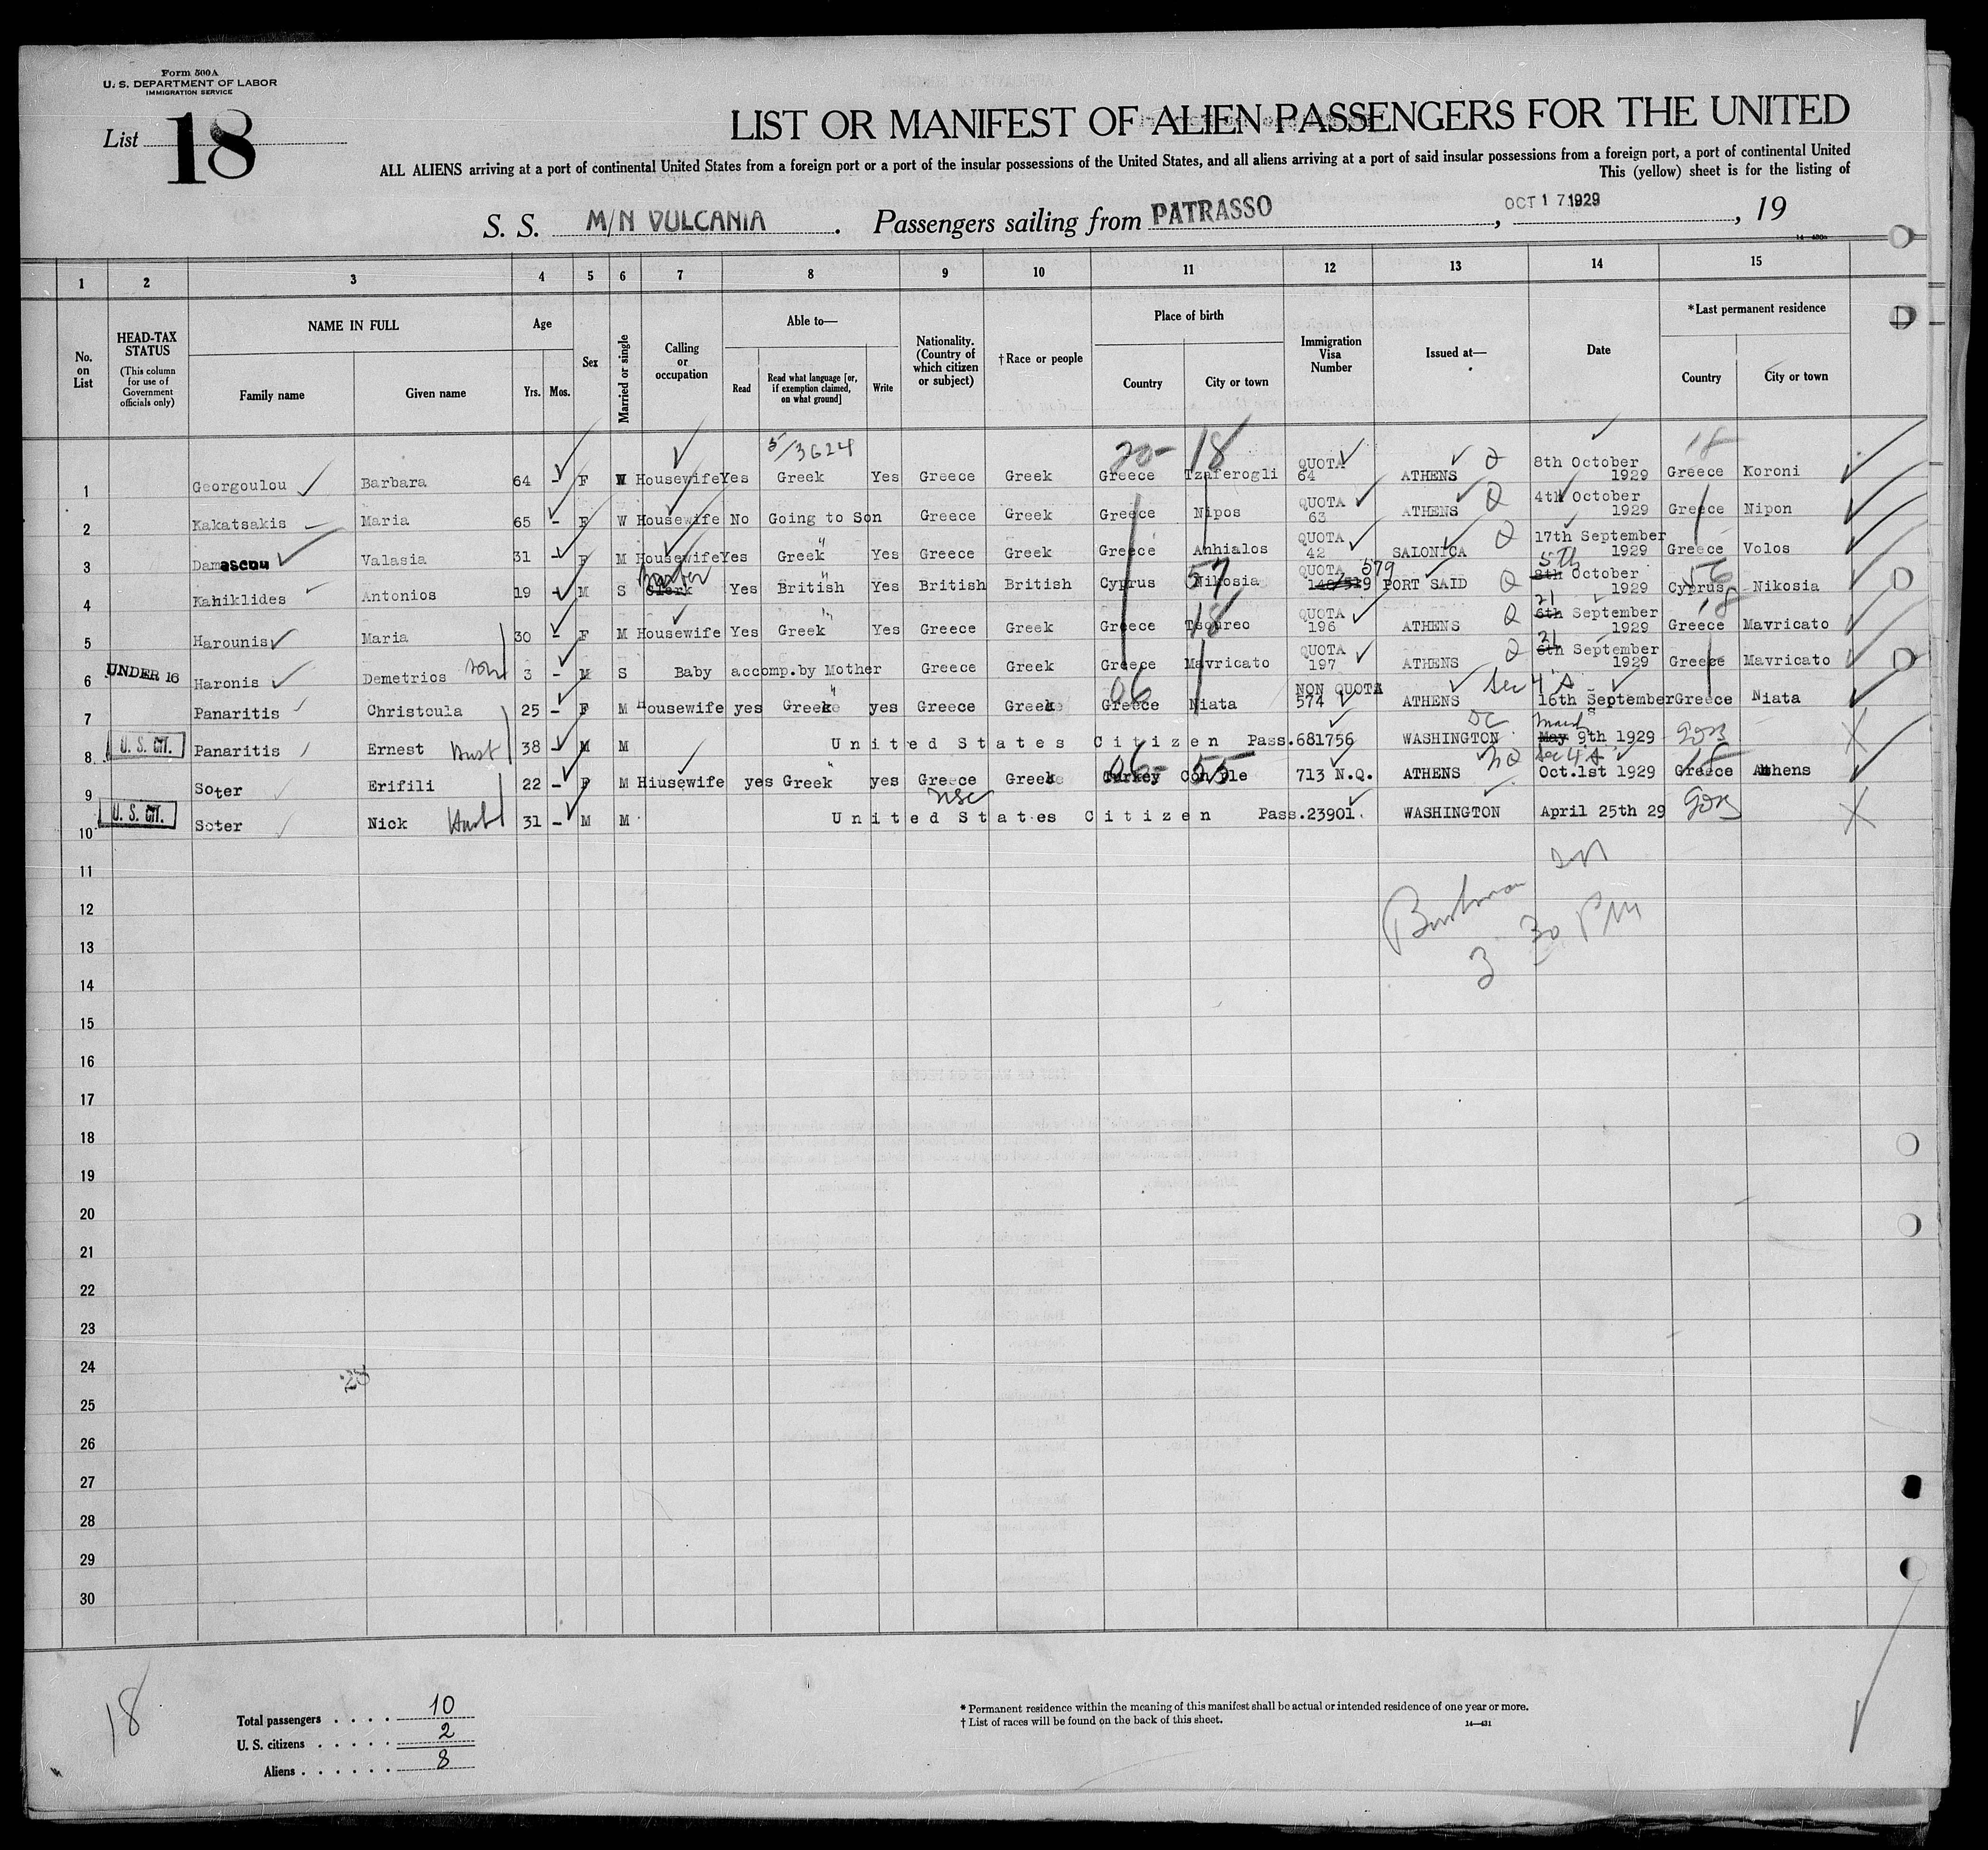 Form 500A
U. S. DEPARTMENT OF LABOR
IMMIGRATION SERVICE
List 18
LIST OR MANIFEST OF ALIEN PASSENGERS FOR THE UNITED
ALL ALIENS arriving at a port of continental United States from a foreign port or a port of the insular possessions of the United States, and all aliens arriving at a port of said insular possessions from a foreign port, a port of continental United
This (yellow) sheet is for the listing of
S. S. M/N VULCANIA . Passengers sailing from PATRASSO , OCT 17 1929 , 19
1 2 3 4 5 6 7 8 9 10 11 12 13 14 15
No. on List
HEAD-TAX STATUS (This column for use of Government officials only)
NAME IN FULL
Family name Given name
Age
Yrs. Mos.
Sex
Married or single
Calling or occupation
Able to—
Read Read what language [or, if exemption claimed, on what ground] Write
Nationality. (Country of which citizen or subject)
†Race or people
Place of birth
Country City or town
Immigration Visa Number
Issued at—
Date
*Last permanent residence
Country City or town
5/3624 20- 18 18
1 Georgoulou Barbara 64 - F W Housewife Yes Greek Yes Greece Greek Greece Tzaferogli QUOTA 64 ATHENS Q 8th October 1929 Greece Koroni
2 Kakatsakis Maria 65 - F W Housewife No Going to Son Greece Greek Greece Nipos QUOTA 63 ATHENS Q 4th October 1929 Greece Nipon
3 Damascou Valasia 31 - F M Housewife Yes Greek Yes Greece Greek Greece Anhialos QUOTA 42 SALONICA Q 17th September 1929 Greece Volos
4 Kahiklides Antonios 19 - M S Clerk Yes British Yes British British Cyprus 57 Nikosia QUOTA 579 PORT SAID Q 5th 8th October 1929 Cyprus 56 Nikosia
5 Harounis Maria 30 - F M Housewife Yes Greek Yes Greece Greek Greece 18 Tsoureo QUOTA 196 ATHENS Q 21 6th September 1929 Greece 18 Mavricato
6 UNDER 16 Haronis Demetrios son 3 - M S Baby accomp.by Mother Greece Greek Greece Mavricato QUOTA 197 ATHENS Q 21 6th September 1929 Greece Mavricato
7 Panaritis Christoula 25 - F M Housewife yes Greek yes Greece Greek 06 Greece Niata NON QUOTA 574 ATHENS Sec 4 A 16th September Greece Niata
8 U. S. CIT. Panaritis Ernest Husb 38 - M M United States Citizen Pass.681756 WASHINGTON DC March May 9th 1929
9 Soter Erifili 22 - F M Hiusewife yes Greek yes Greece Greek 06- 55 Turkey Con ple 713 N.Q. ATHENS NQ Sec 4 A Oct.1st 1929 18 Greece Athens
10 U. S. CIT. Soter Nick Husb 31 - M M USC United States Citizen Pass.23901. WASHINGTON April 25th 29
11
12
3 30 PM
13
14
15
16
17
18
19
20
21
22
23
24
25
26
27
28
29
30
18
Total passengers . . . . 10
U. S. citizens . . . . . 2
Aliens . . . . . . 8
* Permanent residence within the meaning of this manifest shall be actual or intended residence of one year or more.
† List of races will be found on the back of this sheet.
14—431